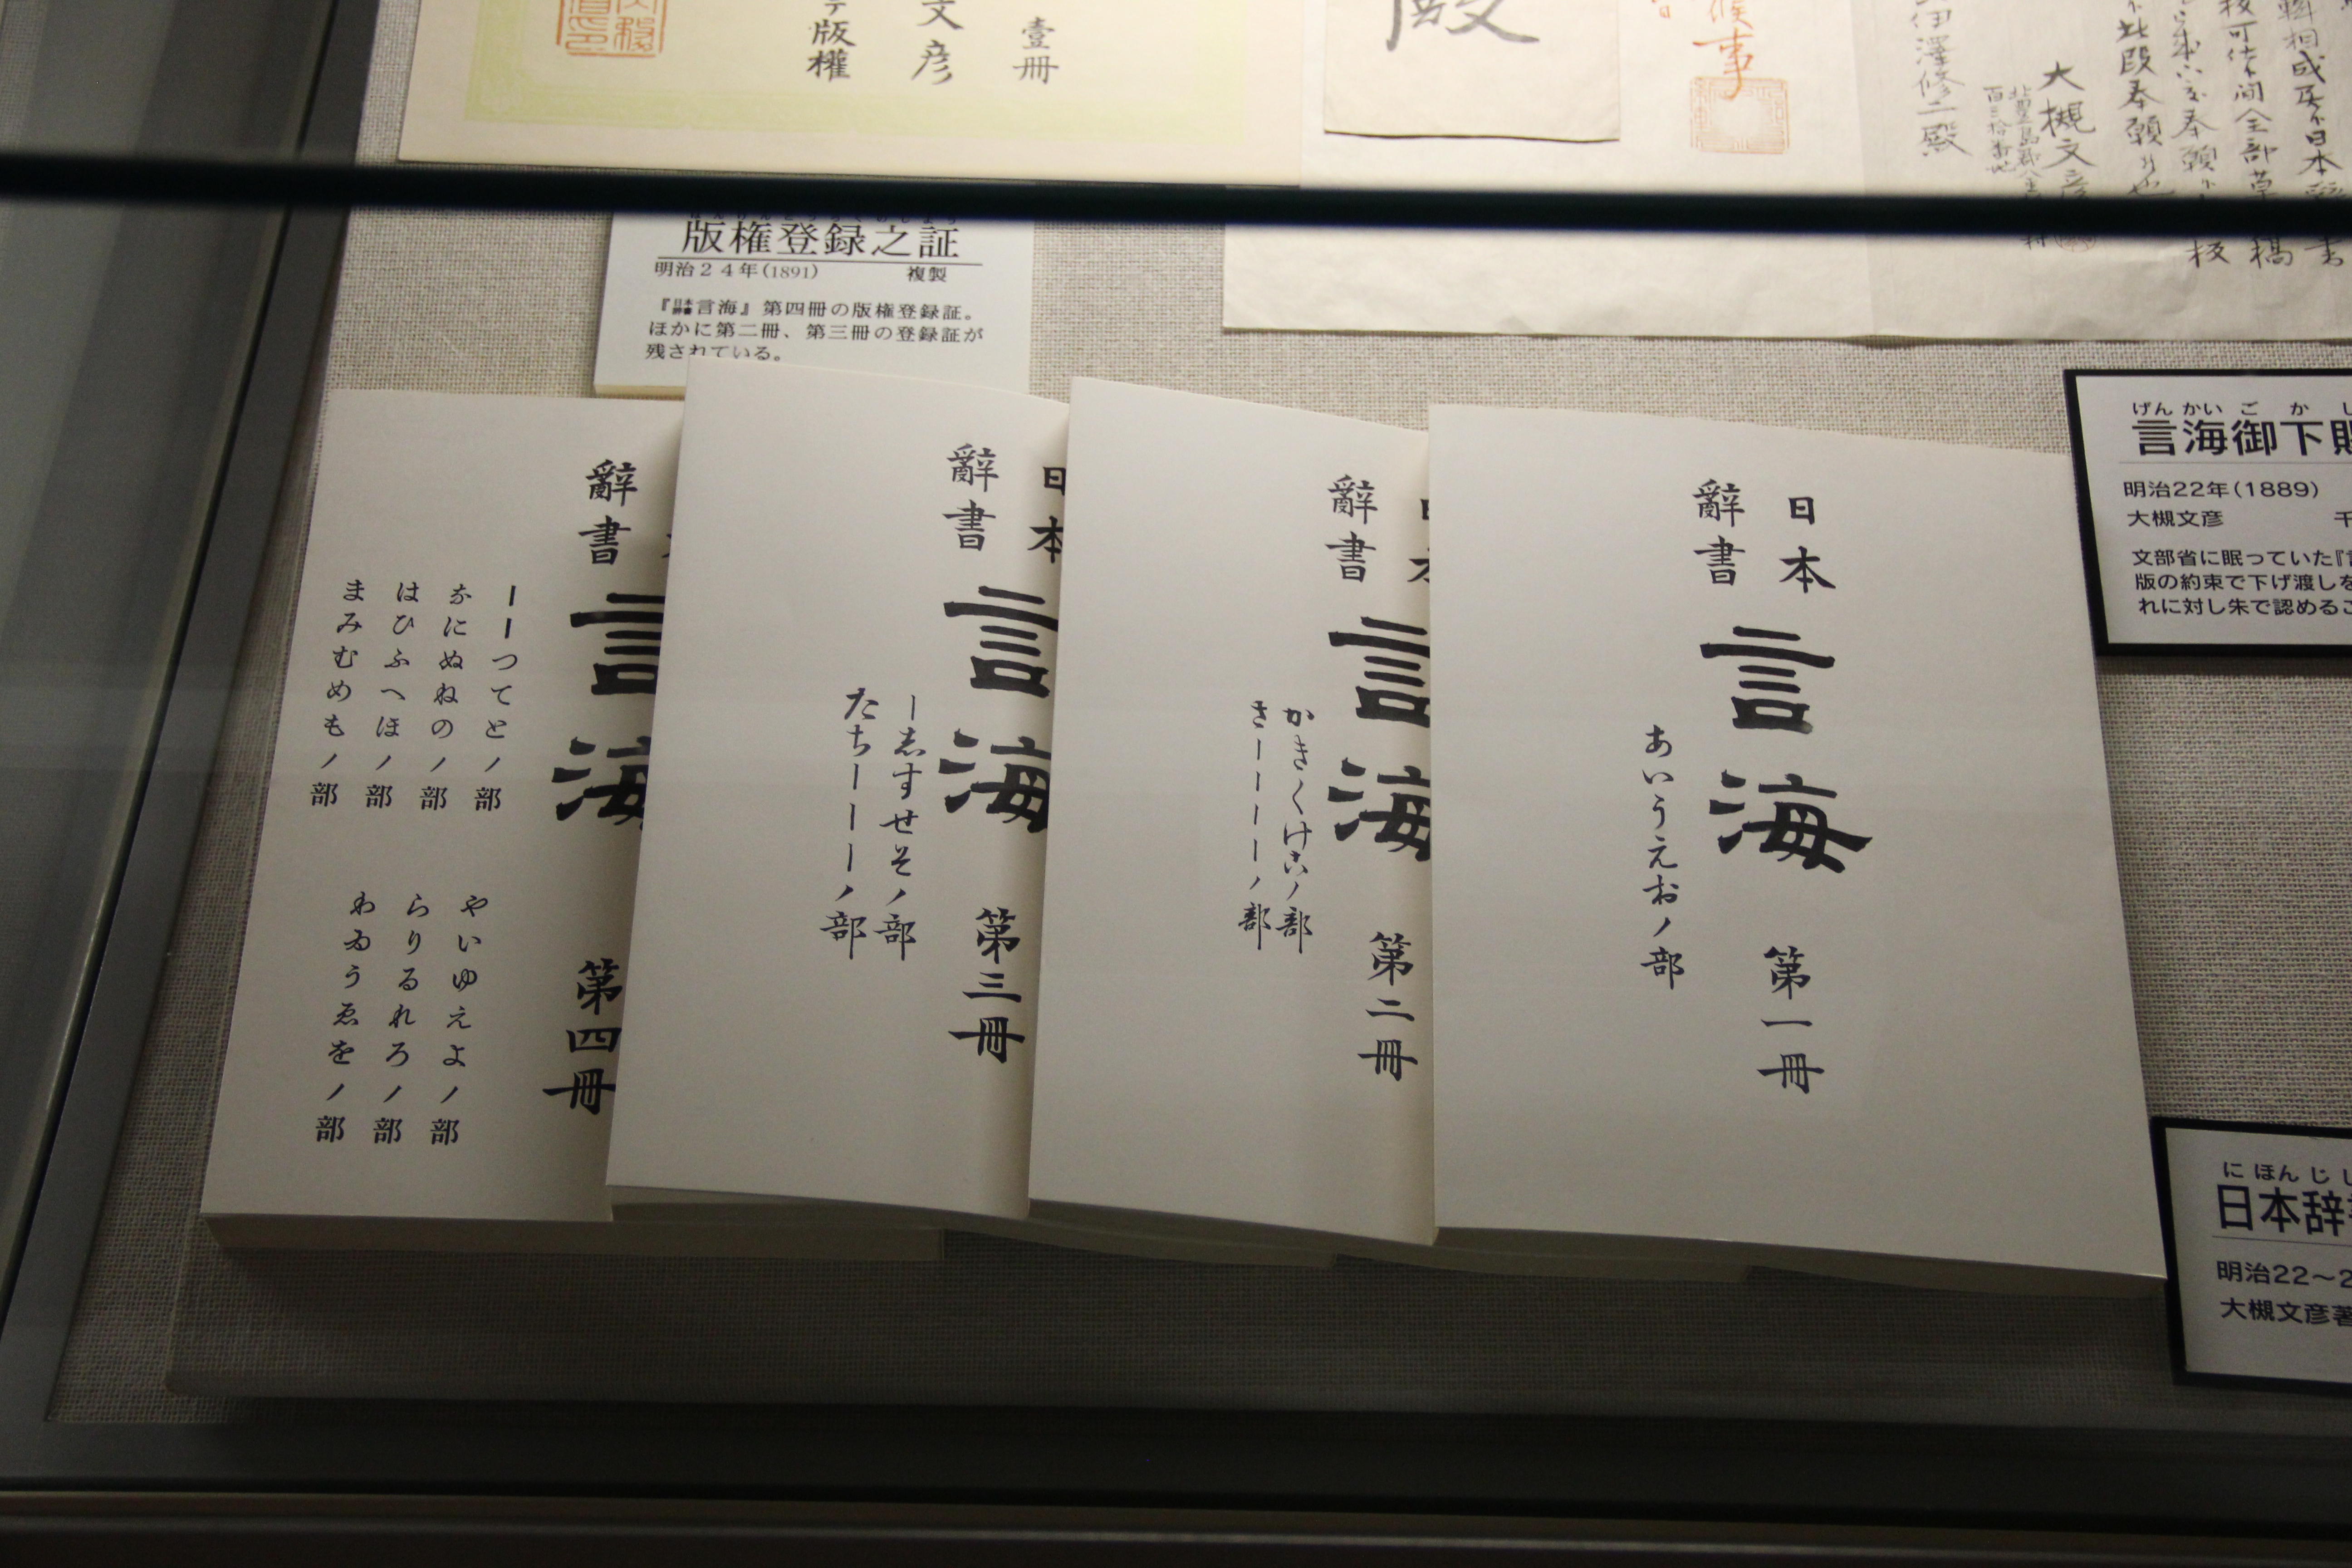 壹冊
文彦
テ版權
殿
候事
伊澤修二殿
大槻文彦
此段奉願
版権登録之証
明治24年(1891) 複製
『日本辞書言海』第四冊の版権登録証。
ほかに第二冊、第三冊の登録証が
残されている。
げんかいごかし
言海御下賜
明治22年(1889)
大槻文彦 千
文部省に眠っていた『言
版の約束で下げ渡しを
れに対し朱で認めるこ
日本
辭書
言海 第一冊
あいうえおノ部
日本
辭書
言海 第二冊
かきくけこノ部
さーーーーノ部
日本
辭書
言海 第三冊
ー志すせそノ部
たちーーーノ部
辭書
言海 第四冊
ーーつてとノ部
なにぬねのノ部
はひふへほノ部
まみむめもノ部
やいゆえよノ部
らりるれろノ部
わゐうゑをノ部
にほんじし
日本辞書
明治22～2
大槻文彦著